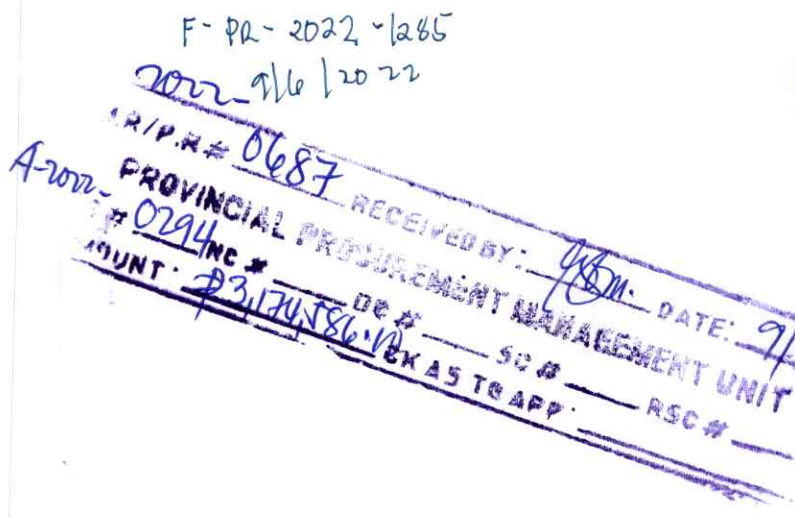 F-PR-2022-1285
2022- 9/6/2022
.R/P.R# 0687 RECEIVED BY: DATE: 9/
PROVINCIAL PROCUREMENT MANAGEMENT UNIT
A-2022- # 0294 NC # ___ OR # ___ SC # ___ RSC # ___
OUNT: ₱3,174,586. CK AS TO APP: